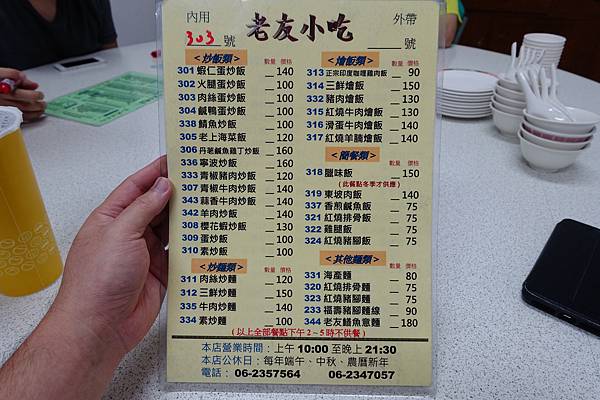 內用 老友小吃 外帶
303 號 號
<炒飯類> 數量 價格
301 蝦仁蛋炒飯 140
302 火腿蛋炒飯 100
303 肉絲蛋炒飯 100
304 鹹鴨蛋炒飯 100
338 鯖魚炒飯 100
305 老上海菜飯 120
306 丹荖鹹魚雞丁炒飯 160
336 寧波炒飯 160
333 青椒豬肉炒飯 120
307 青椒牛肉炒飯 140
343 蒜香牛肉炒飯 140
342 羊肉炒飯 140
308 櫻花蝦炒飯 130
309 蛋炒飯 100
310 素炒飯 100
<炒麵類> 數量 價格
311 肉絲炒麵 120
312 三鮮炒麵 150
335 牛肉炒麵 140
334 素炒麵 100
<燴飯類> 數量 價格
313 正宗印度咖哩雞肉飯 90
314 三鮮燴飯 150
332 豬肉燴飯 130
315 紅燒牛肉燴飯 130
316 滑蛋牛肉燴飯 140
317 紅燒羊腩燴飯 140
<簡餐類> 數量 價格
318 臘味飯 150
(此餐點冬季才供應)
319 東坡肉飯 140
337 香煎鹹魚飯 75
321 紅燒排骨飯 75
322 雞腿飯 75
324 紅燒豬腳飯 75
<其他麵類> 數量 價格
331 海產麵 80
320 紅燒排骨麵 75
323 紅燒豬腳麵 75
233 福壽豬腳麵線 90
344 老友鱔魚意麵 180
(以上全部餐點下午2~5時不供餐)
本店營業時間：上午 10:00 至晚上 21:30
本店公休日：每年端午、中秋、農曆新年
電話： 06-2357564 06-2347057